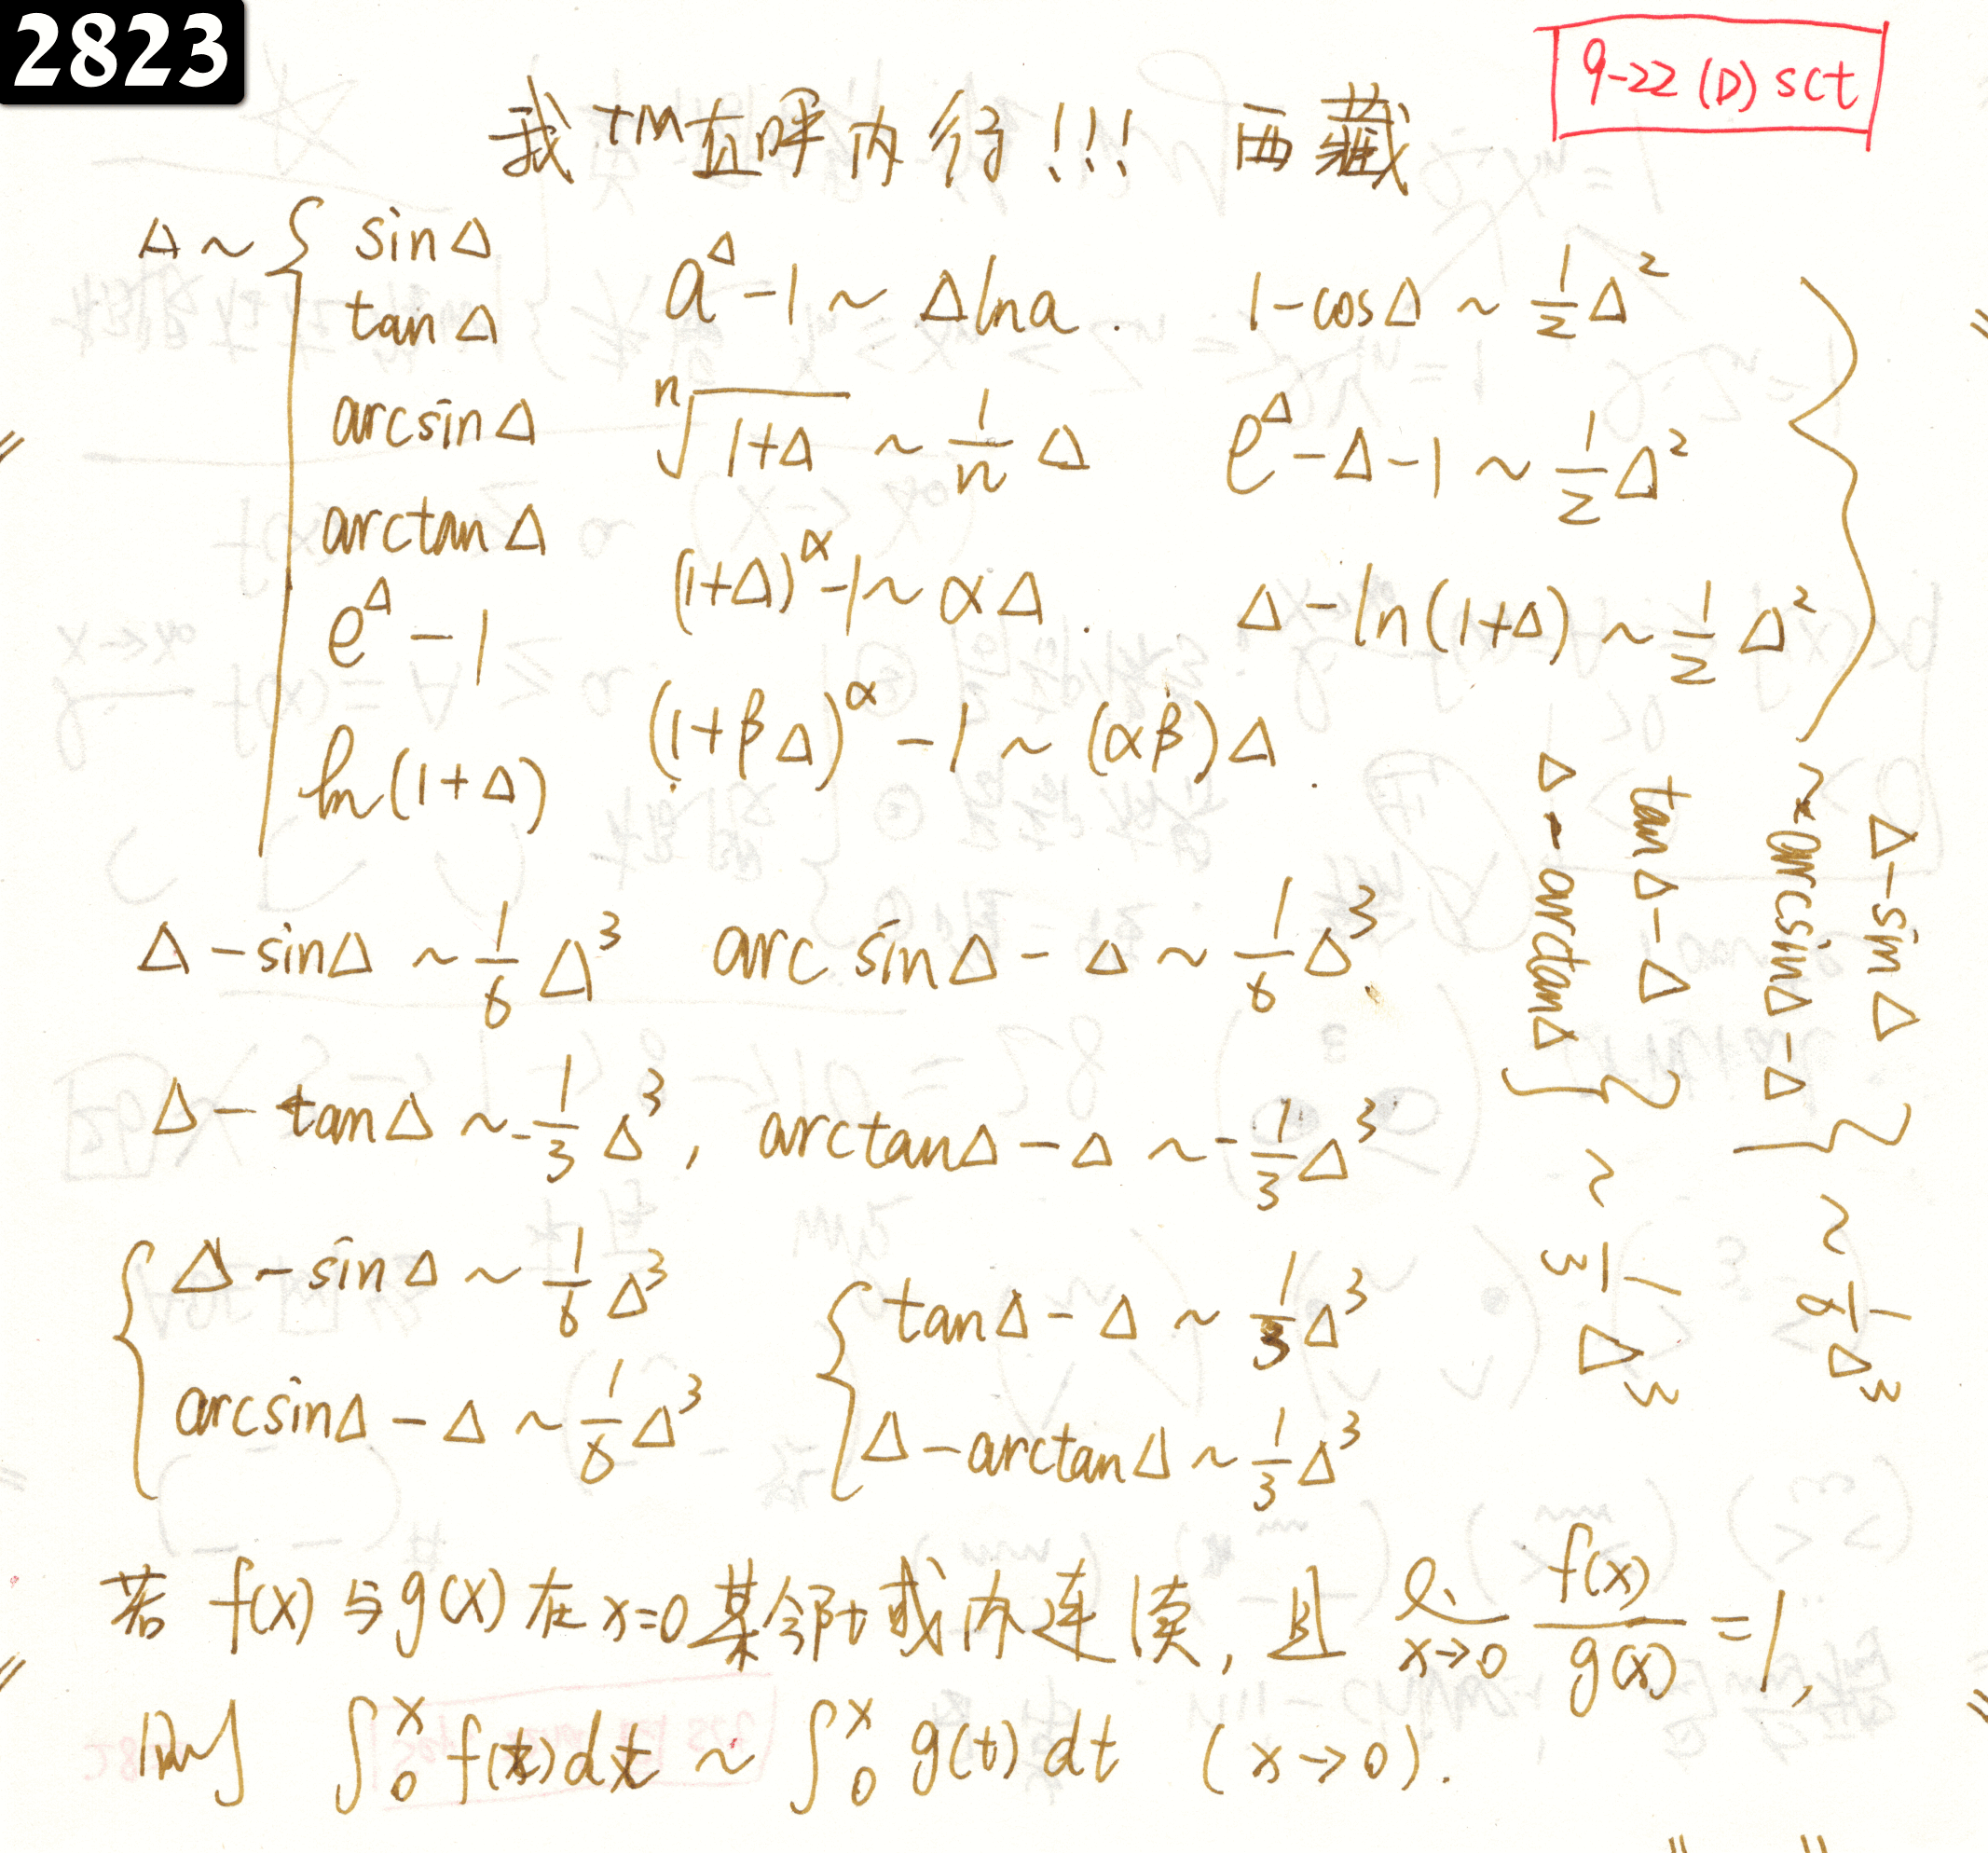 2823
9-22 (D) sct
我TM直呼内行!!! 西藏
Δ ~ { sinΔ
tanΔ
arcsinΔ
arctanΔ
e^Δ - 1
ln(1+Δ)
a^Δ - 1 ~ Δlna.
ⁿ√(1+Δ) ~ 1/n Δ
(1+Δ)^α - 1 ~ αΔ.
(1+βΔ)^α - 1 ~ (αβ)Δ.
1-cosΔ ~ 1/2 Δ²
e^Δ - Δ - 1 ~ 1/2 Δ²
Δ - ln(1+Δ) ~ 1/2 Δ²
Δ - sinΔ ~ 1/6 Δ³ arc sinΔ - Δ ~ 1/6 Δ³.
Δ - tanΔ ~ -1/3 Δ³, arctanΔ - Δ ~ -1/3 Δ³
{ Δ - sinΔ ~ 1/6 Δ³
arcsinΔ - Δ ~ 1/6 Δ³
{ tanΔ - Δ ~ 1/3 Δ³
Δ - arctanΔ ~ 1/3 Δ³
Δ - sinΔ
arcsinΔ - Δ } ~ 1/6 Δ³
tanΔ - Δ
Δ - arctanΔ } ~ 1/3 Δ³
若 f(x) 与 g(x) 在 x=0 某邻域内连续, 且 l. x→0 f(x)/g(x) = 1,
则 ∫₀ˣ f(t)dt ~ ∫₀ˣ g(t)dt (x→0).